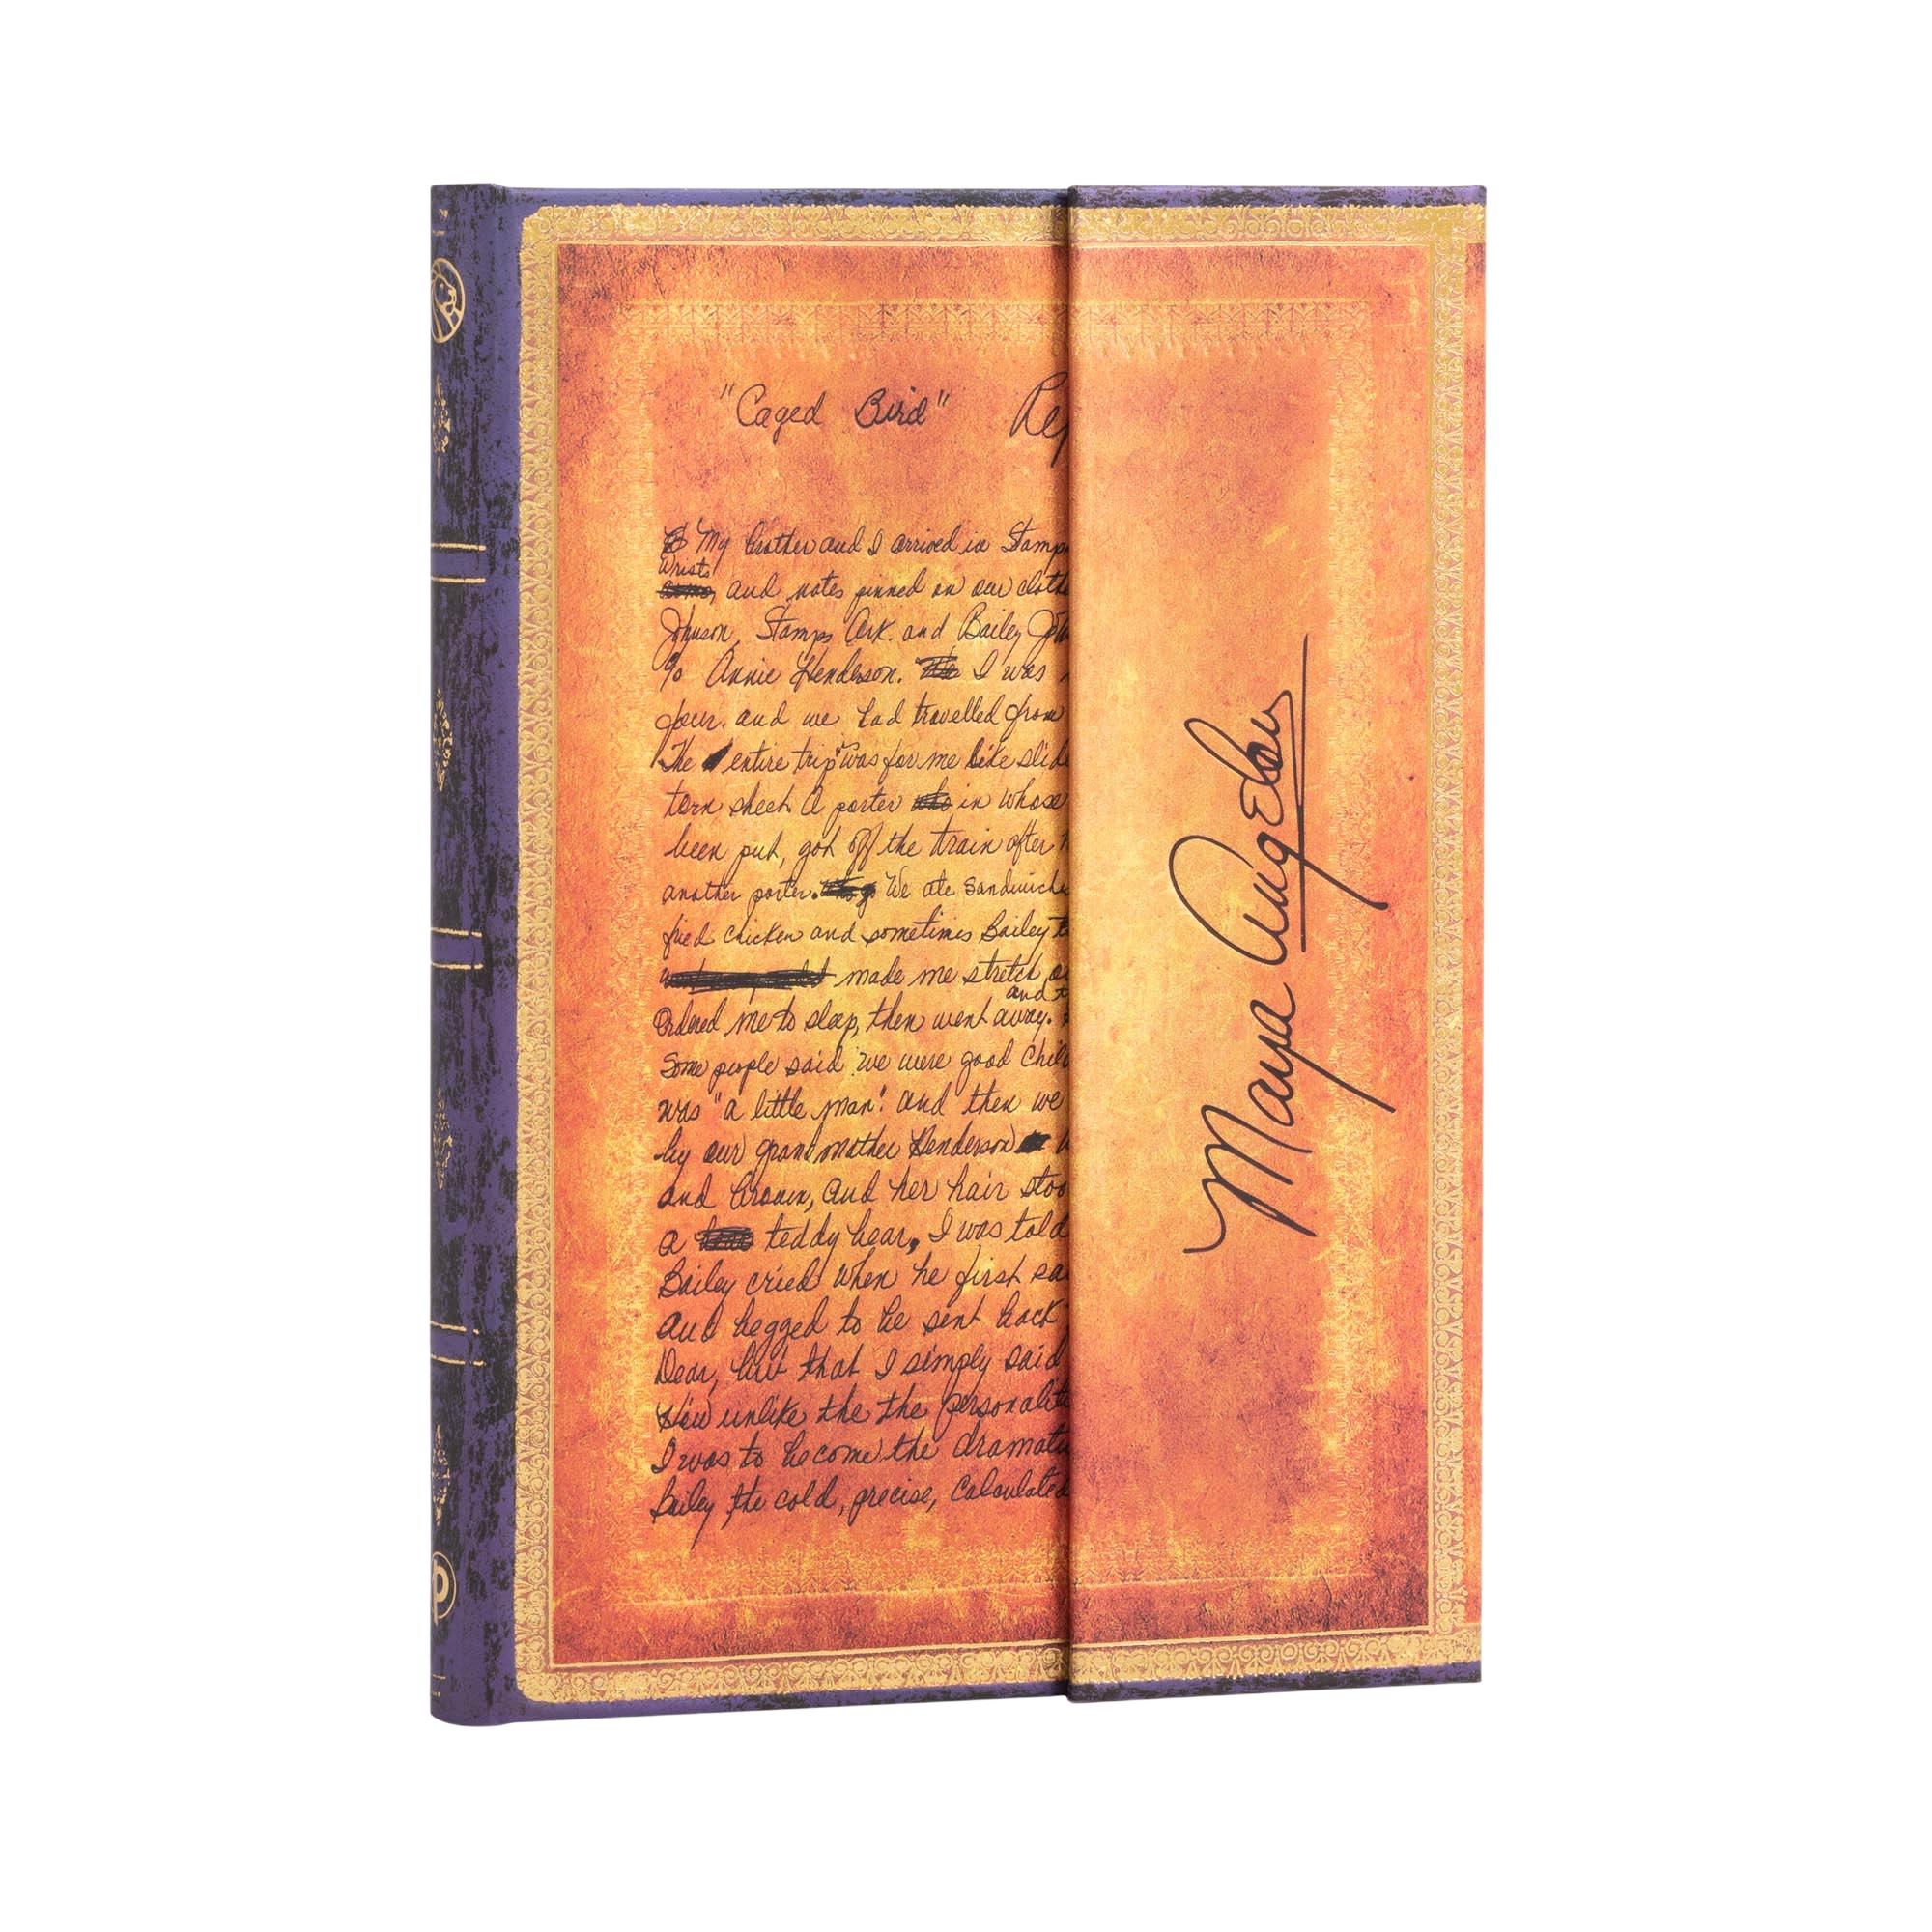 "Caged Bird" Rep
My brother and I arrived in Stamp
wrists
and notes pinned on our cloth
Johnson, Stamps Ark. and Bailey Joh
c/o Annie Henderson. I was
four. and we had travelled from
The entire trip was for me like slid
torn sheet. A porter who in whose
been put, got off the train after
another porter. We ate sandwiche
fried chicken and sometimes Bailey
made me stretch o
and
Ordered me to sleep, then went away.
Some people said we were good chil
was "a little man". and then we
by our grandmother Henderson
and brown, and her hair stoo
a teddy bear, I was told
Bailey cried when he first sa
and begged to be sent back
Dear, but that I simply said
How unlike the the personalit
I was to become the dramat
Bailey the cold, precise, calculated
Maya Angelou
p